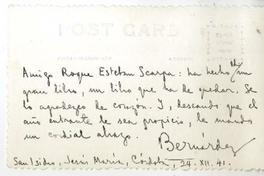 POST CARD
Amigo Roque Esteban Scarpa: ha hecho Ud. un
gran libro, un libro que ha de quedar. Se
lo agradezco de corazón. Y, deseando que el
año entrante le sea propicio, le mando
un cordial abrazo.
Bernárdez
San Isidro, Jesús María, Córdoba, 24. XII. 41.